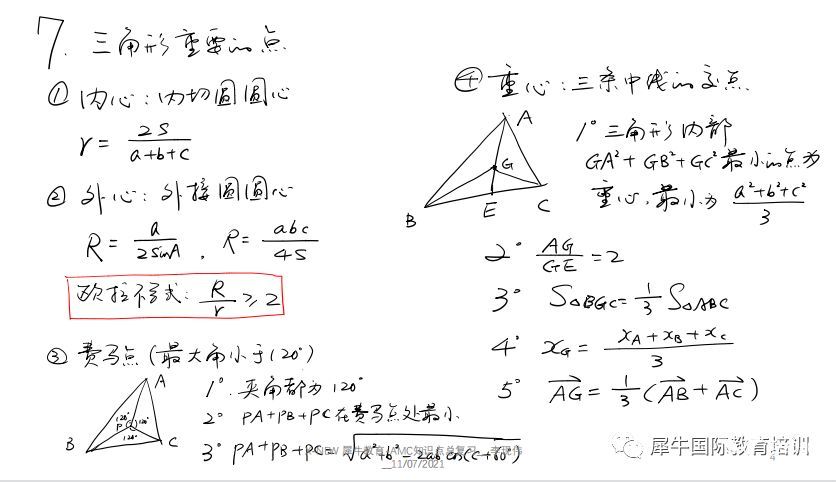 7. 三角形重要的点
① 内心：内切圆圆心
r = 2S / (a+b+c)
② 外心：外接圆圆心
R = a / 2sinA , R = abc / 4S
欧拉不等式: R/r ≥ 2
③ 费马点 (最大角小于120°)
A
B
C
P
120°
120°
120°
1° 夹角都为120°
2° PA+PB+PC在费马点处最小
3° PA+PB+PC = √(a²+b²-2ab cos(C+60°))
④ 重心：三条中线的交点.
A
B
C
G
E
1° 三角形内部
GA²+GB²+GC²最小的点为
重心, 最小为 (a²+b²+c²)/3
2° AG/GE = 2
3° S△BGC = 1/3 S△ABC
4° x_G = (x_A+x_B+x_C)/3
5° AG = 1/3 (AB + AC)
NEW 犀牛教育 AMC知识点总复习
11/07/2021
犀牛国际教育培训
4